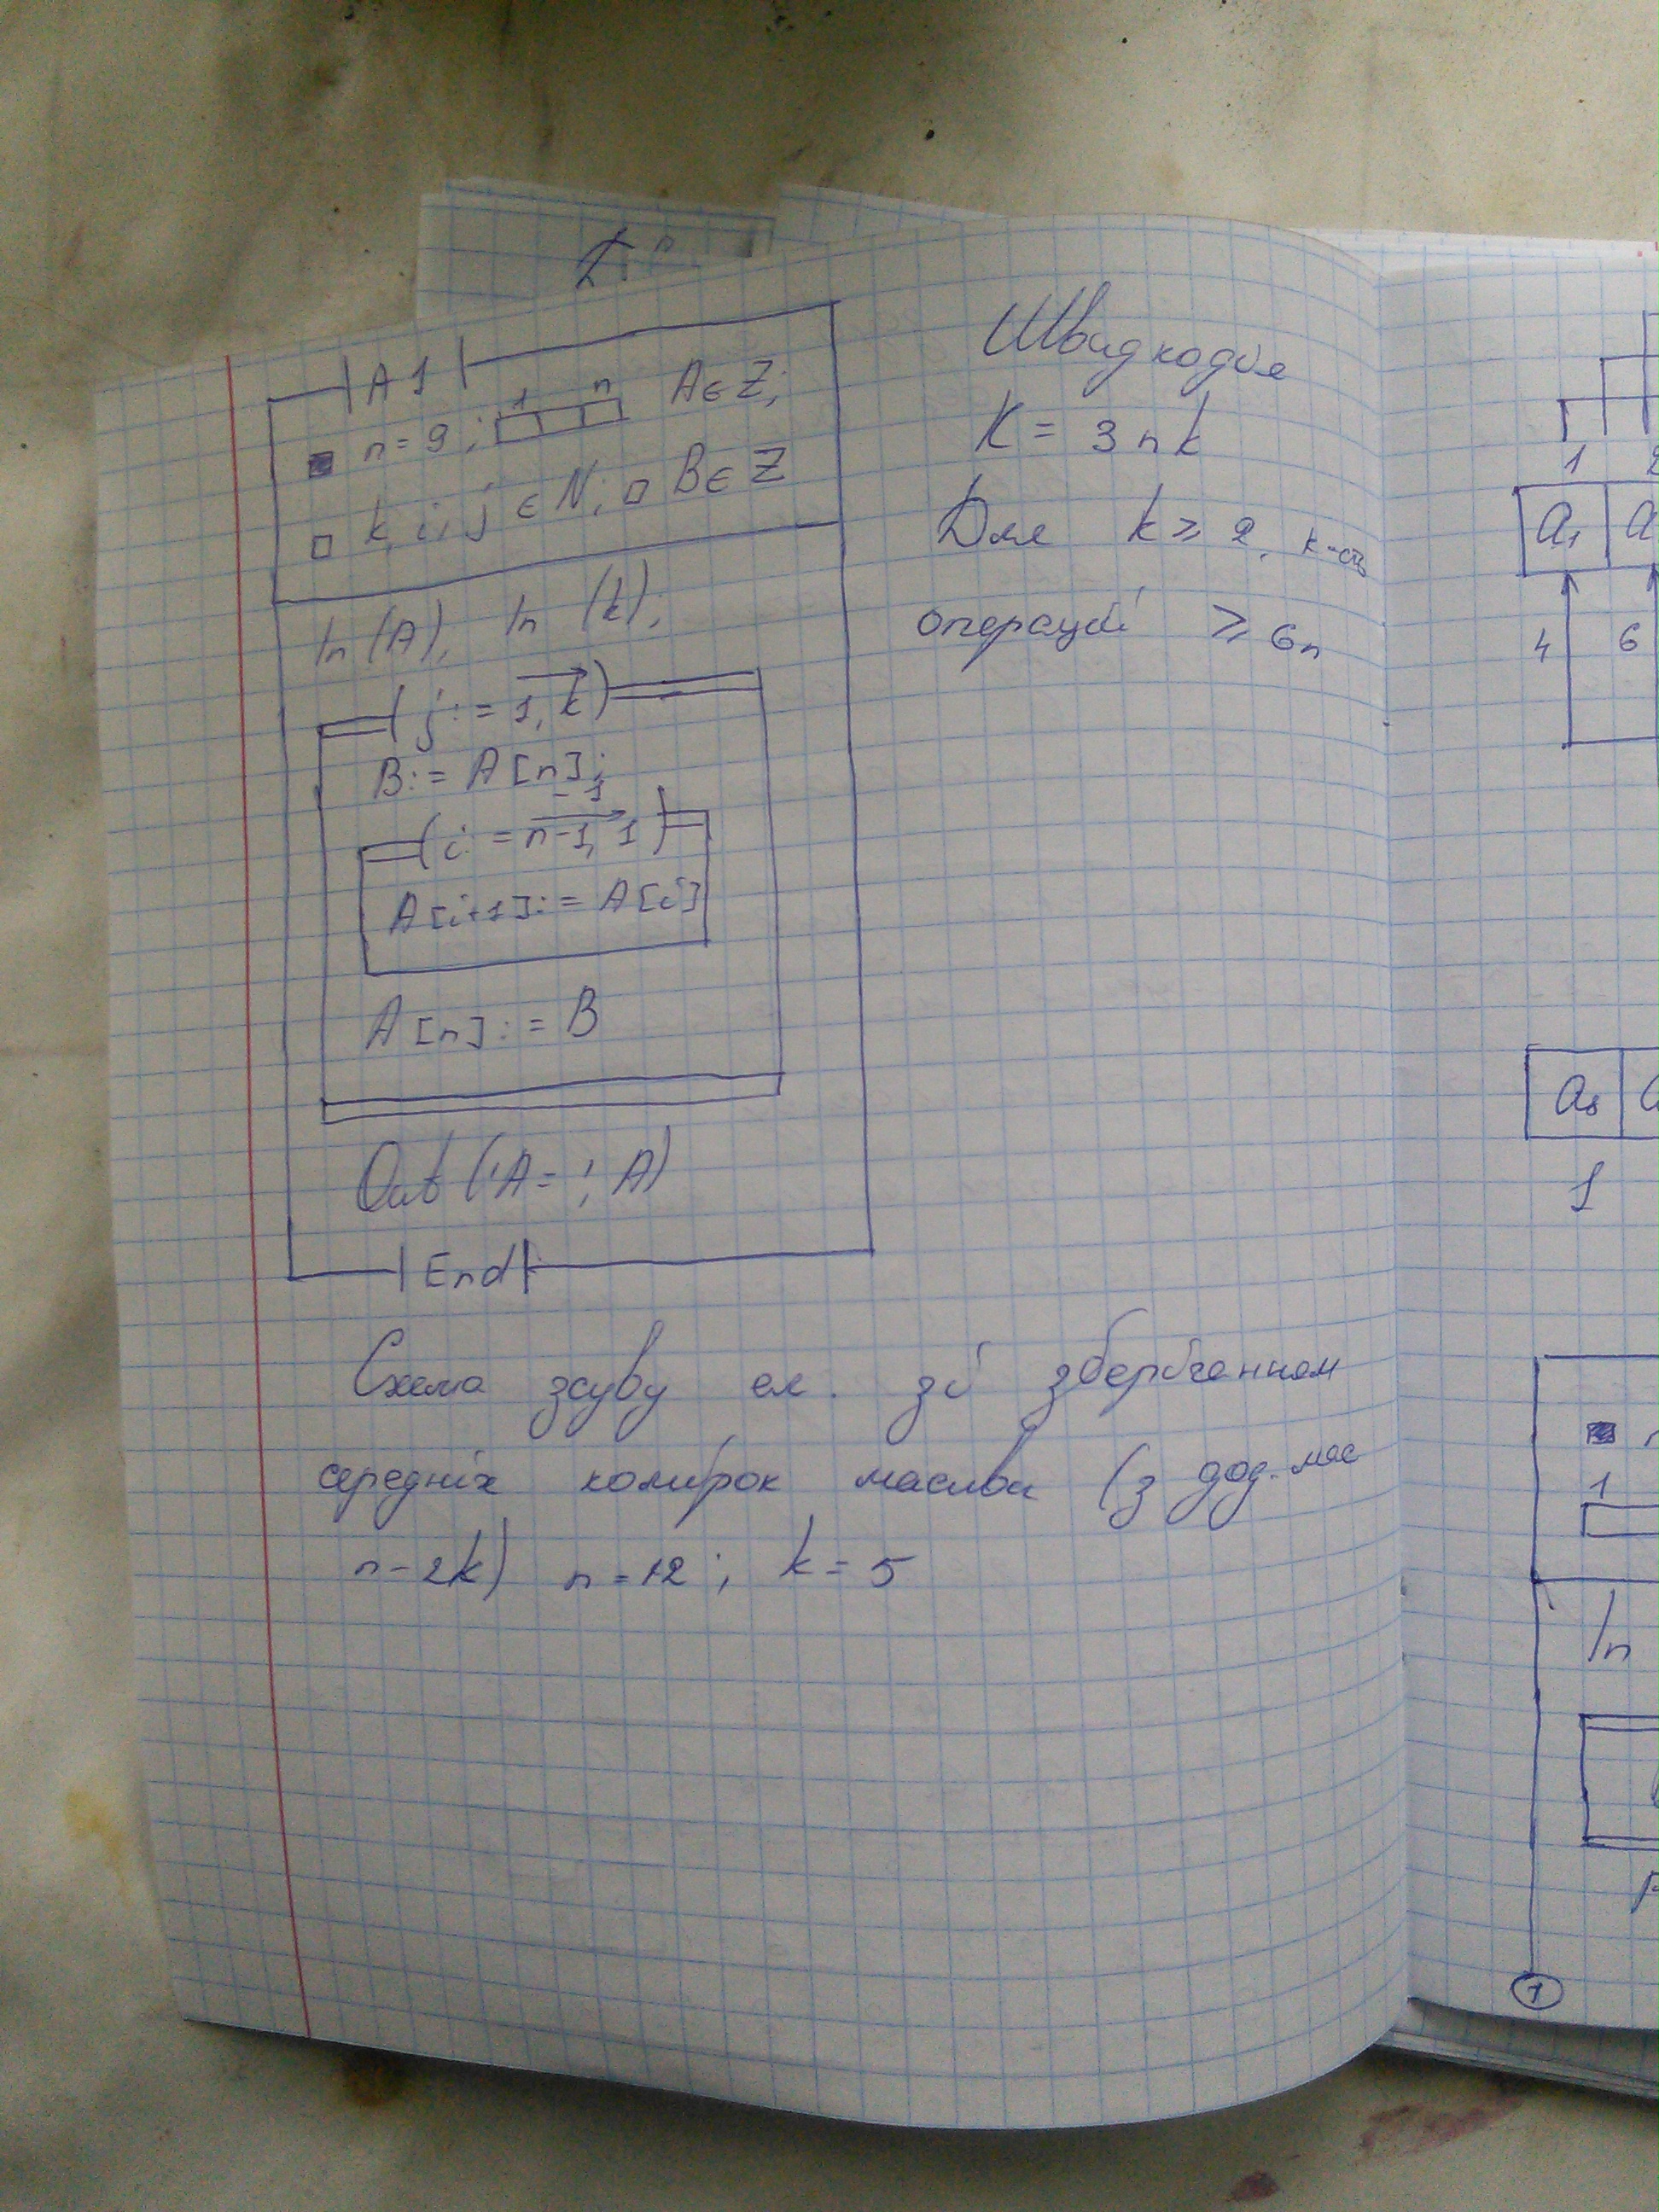 A1
1 n
n = 9; A ∈ Z;
k, i, j ∈ N; B ∈ Z
In (A), In (k);
(j := 1, k)
B := A[n];
-1
(i := n-1, 1)
A[i+1] := A[i]
A[n] := B
Out ('A= ', A)
End
Швидкодія
K = 3nk
Для k ≥ 2, к-сть
операцій ≥ 6n
Схема зсуву ел. зі зберіганням
середніх комірок масиви (з дод. мас
n-2k) n = 12; k = 5
1 2
a₁ a
4 6
a₈ a
1
1
In
1